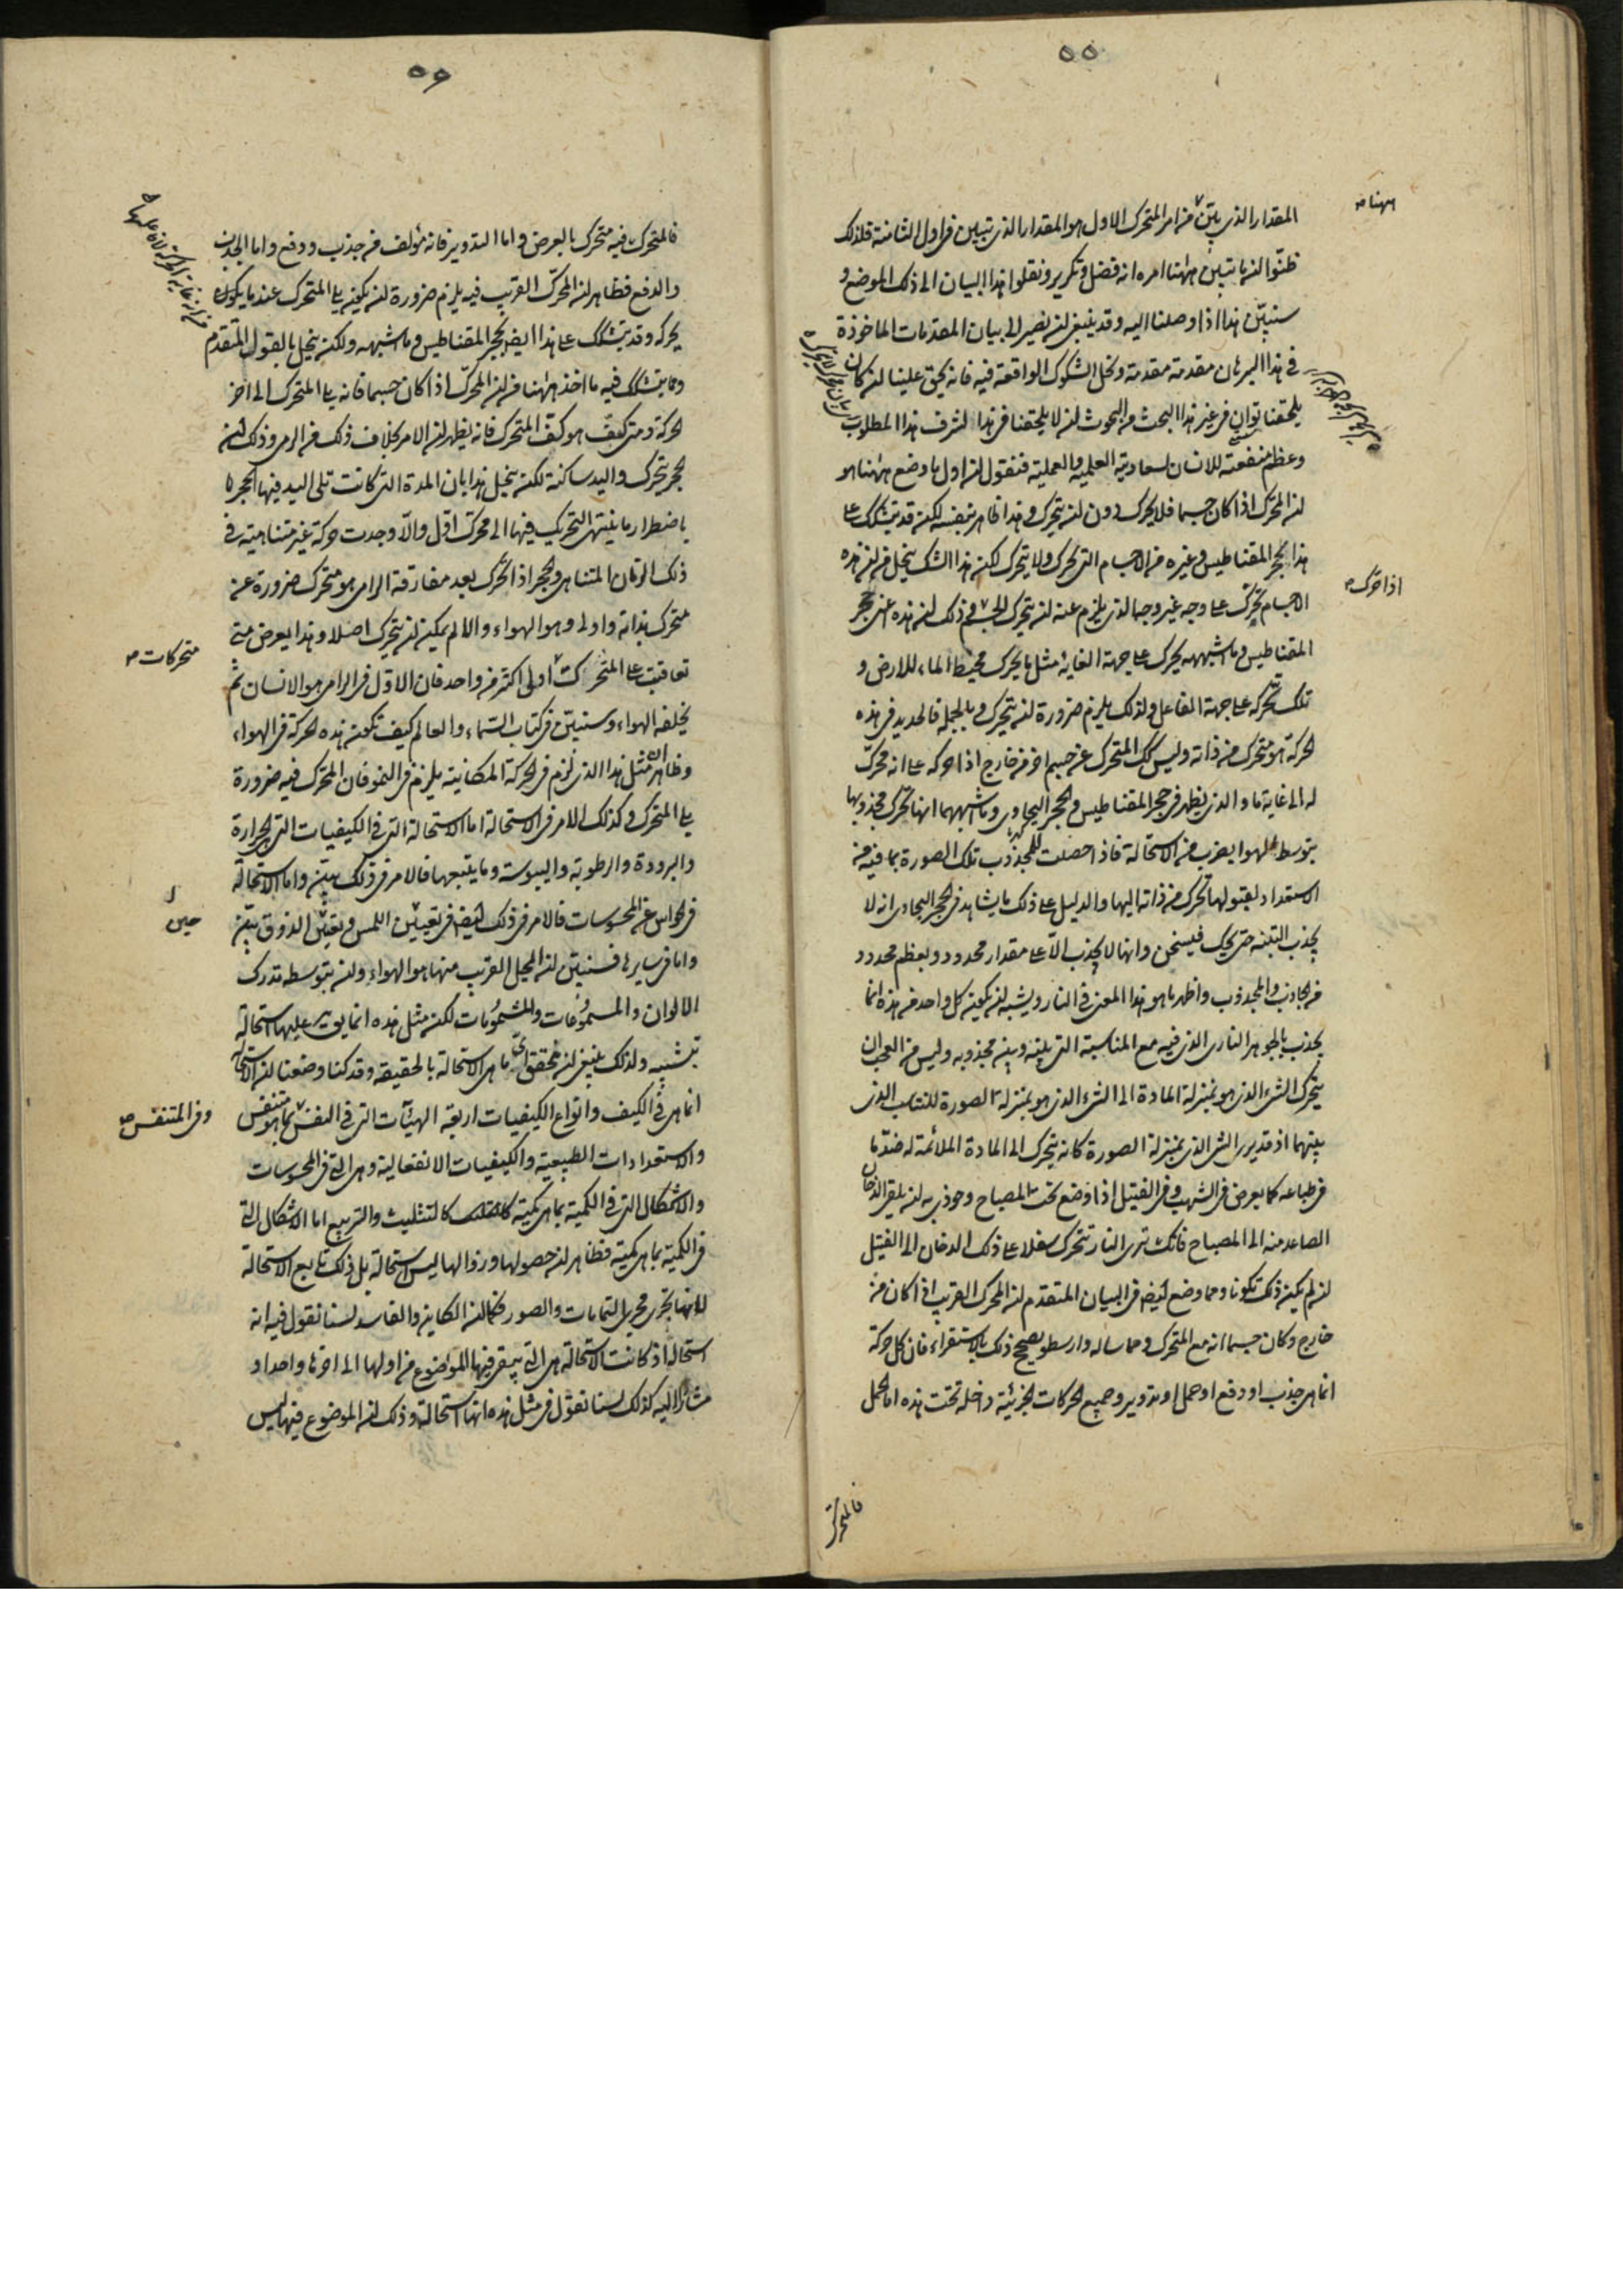 ٥٥
ههنا
المقدار الذي يتبين من امر المتحرك الاول هو المقدار الذي تبين في اول الثامنة فلذلك
ظنوا ان ما تبين ههنا امره انه فضل وتكرير ونقلوا هذا البيان الى ذلك الموضع و
سنبين هذا اذا وصلنا اليه وقد ينبغي ان نصير الى بيان المقدمات الماخوذة
في هذا البرهان مقدمة مقدمة ونحل الشكوك الواقعة فيه فانه يحق علينا ان كان
يلحقنا توان في غير هذا البحث من البحوث ان لا يلحقنا في هذا لشرف هذا المطلوب
وعظم منفعته للانسان لسعادته العلمية والعملية فنقول ان اول ما وضع ههنا هو
ان المحرك اذا كان جسما فلا يحرك دون ان يتحرك وهذا ظاهر بنفسه لكنه قد يتشكك على
هذا بحجر المقناطيس وغيره من الاجسام التي تحرك ولا يتحرك لكن هذا الشك ينحل من ان هذه
اذا حرك
الاجسام تحرك على وجه غير وجه الذي يلزم عنه ان يتحرك الجسم وذلك ان هذه اعني حجر
المقناطيس وما اشبهه يحرك على جهة الغاية مثل ما يحرك محيط الماء للارض و
تلك تحركه على جهة الفاعل ولذلك يلزم ضرورة ان يتحرك وبالجملة فالحديد في هذه
الحركة هو متحرك من ذاته وليس كك المتحرك عن جسم اخر من خارج اذا حركه على انه محرك
له الى غاية ما والذي يظهر في حجر المقناطيس والحجر البجادي وما اشبههما انها تحرك مجذوبها
بتوسط الهوا بضرب من الاستحالة فاذا حصلت للمجذوب تلك الصورة بما فيه من
الاستعداد لقبولها تحرك من ذاته اليها والدليل على ذلك ما يشاهد في الحجر البجادي انه لا
يجذب التبنه حتى يحك فيسخن وانها لا يجذب الا على مقدار محدود وبعظم محدود
من الجاذب والمجذوب واظهر ما هو هذا المعنى في النار ويشبه ان يكون كل واحد من هذه انما
يجذب بالجوهر الناري الذي فيه مع المناسبة التي بينه وبين مجذوبه وليس من العجب ان
يتحرك الشيء الذي هو بمنزلة المادة الى الشيء الذي هو بمنزلة الصورة للتناسب الذي
بينهما اذ قد يرى الشيء الذي بمنزلة الصورة كانه يتحرك الى المادة الملائمة له ضد ما
في طباعه كما يعرض في الشهب وفي الفتيل اذا وضع تحت المصباح وحوذي به ان يلقى الدخان
الصاعد منه الى المصباح فانك ترى النار تتحرك سفلا على ذلك الدخان الى الفتيل
ان لم يكن ذلك تكونا ومما وضع ايض في البيان المتقدم ان المحرك القريب اذا كان من
خارج وكان جسما انه مع المتحرك ومماس له وارسطو يصحح ذلك بالاستقراء فان كل حركة
انما هي جذب او دفع او حمل او تدوير وجميع الحركات الجزئية داخلة تحت هذه اما الحمل
فالمتحرك
٥٦
فالمتحرك فيه متحرك بالعرض واما التدوير فانه مؤلف من جذب ودفع واما الجذب
والدفع فظاهر ان المحرك القريب فيه يلزم ضرورة ان يكون يلي المتحرك عند ما يكون
يحركه وقد يتشكك على هذا ايض بحجر المقناطيس وما اشبهه ولكن ينحل بالقول المتقدم
ومما يتشكك فيه ما اخذ ههنا من ان المحرك اذا كان جسما فانه يلي المتحرك الى اخر
الحركة ومتى كف هو كف المتحرك فانه يظهر ان الامر بخلاف ذلك في الرمي وذلك ان
الحجر يتحرك واليد ساكنة لكن ينحل هذا بان المدة التي كانت تلي اليد فيها الحجر ها
باضطرار ما ينتهي التحريك فيها الى محرك اقل والا وجدت حركة غير متناهية في
ذلك الزمان المتناهي والحجر اذا تحرك بعد مفارقة الرامي هو متحرك ضرورة عن
متحرك بذاته واولا وهو الهواء والا لم يمكن ان يتحرك اصلا وهذا يعرض متى
متحركات
تعاقبت على المتحرك اولى اكثر من واحد فان الاول في الرامي هو الانسان ثم
يخلفه الهواء وسنبين في كتاب السماء والعالم كيف تكون هذه الحركة في الهواء
وظاهر ان مثل هذا الذي لزم في الحركة المكانية يلزم في النمو فان المحرك فيه ضرورة
يلي المتحرك وكذلك الامر في الاستحالة اما الاستحالة التي في الكيفيات التي الحرارة
والبرودة والرطوبة واليبوسة وما يتبعها فالامر في ذلك بين واما الاستحالة
في الحواس عن المحسوسات فالامر في ذلك ايض في تعيين اللمس وتعين الذوق بين
حين
واما في سايرها فسنبين ان المحيل القريب منها هو الهواء وان بتوسطه تدرك
الالوان والمسموعات والمشمومات لكن مثل هذه انما يق عليها استحالة
بتشبيه ولذلك ينبغي ان نحقق اي ما هي الاستحالة بالحقيقة وقد كنا وضعنا ان الاستحالة
انما هي في الكيف وانواع الكيفيات اربعة الهيآت التي في النفس بما هو متنفس
وفي المتنفس
والاستعدادات الطبيعية والكيفيات الانفعالية وهي التي في المحسوسات
والاشكال التي في الكمية بما هي كمية كالتثليث والتربيع اما الاشكال التي
في الكمية بما هي كمية فظاهر ان حصولها وزوالها ليس استحالة بل ذلك تابع الاستحالة
لانها تجري مجرى التمامات والصور فكما ان الكاين والفاسد لسنا نقول فيه انه
استحال اذ كانت الاستحالة هي التي يبقى فيها الموضوع من اولها الى اخرها واحدا و
مشارا اليه كذلك لسنا نقول في مثل هذه انها استحالة وذلك ان الموضوع فيها ليس